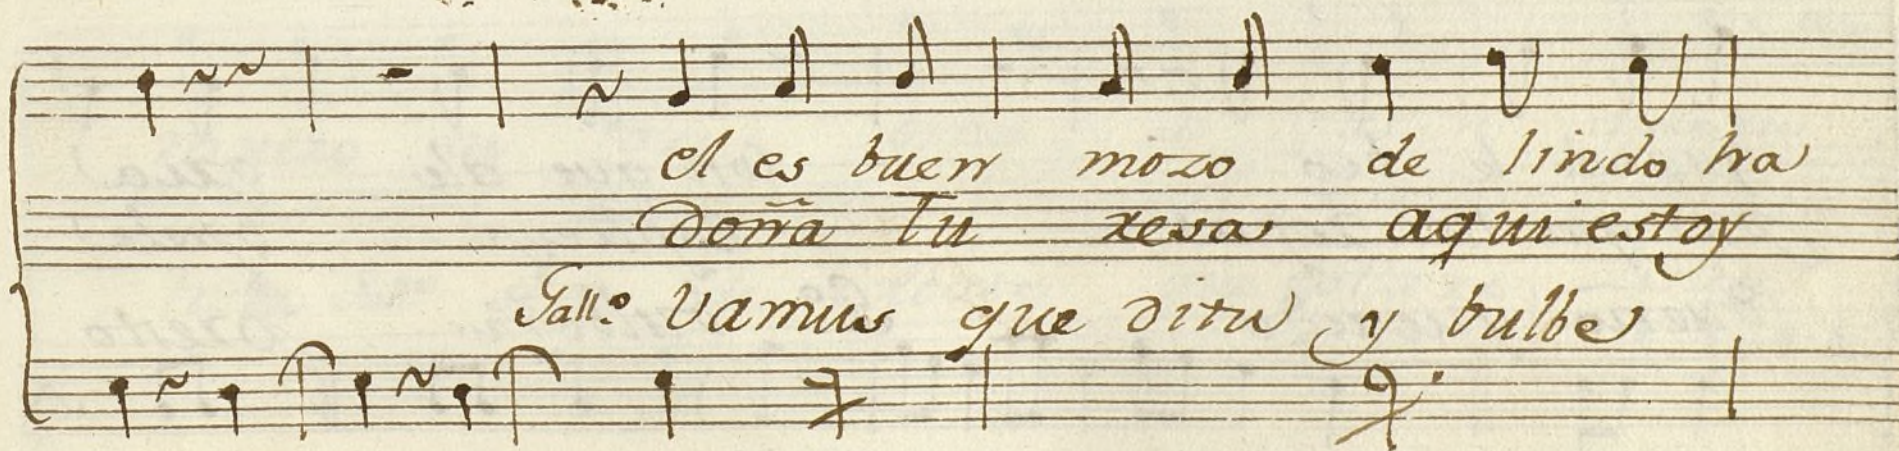 el es buen mozo de lindo ha
doña Tu resa aqui estoy
Gall.º vamus que ditu y bulbe